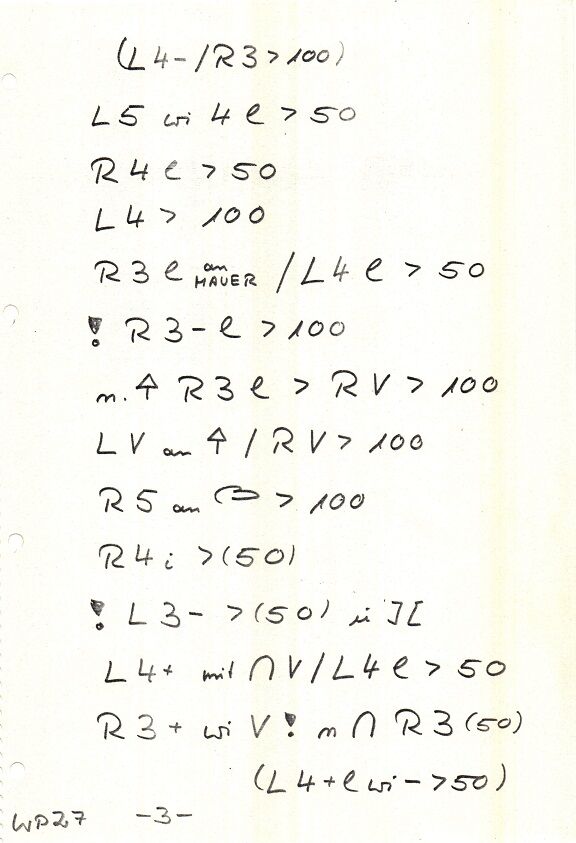 (L4-/R3>100)
L5 wi 4 e > 50
R4 e > 50
L4 > 100
R3 e an MAUER / L4 e > 50
! R3-e > 100
n. ↑ R3 e > RV > 100
LV an ↑ / RV > 100
R5 an > 100
R4 i >(50)
! L3- >(50) in ][
L4+ mit ∩ V/L4 e > 50
R3+ wi V! n ∩ R3(50)
(L4+e wi - >50)
WP27 -3-